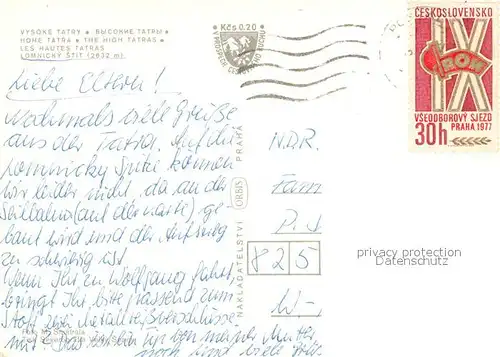 VYSOKÉ TATRY • ВЫСОКИЕ ТАТРЫ •
HOHE TATRA • THE HIGH TATRAS •
LES HAUTES TATRAS
LOMNICKÝ ŠTÍT (2632 m)
Kčs 0.20
ČESKOSLOVENSKO
IX
ROH
VŠEODBOROVÝ SJEZD
PRAHA 1977
30h
Liebe Eltern!
Nochmals viele Grüße
aus der Tatra. Auf die
Lomnicky Spitze können
wir leider nicht, da an der
Seilbahn (auf der Karte) ge-
baut wird und der Aufstieg
zu schwierig ist.
Wenn Ihr zu Wolfgang fahrt,
bringt Ihr bitte passend zum
Stoff zwei Metallreißverschlüsse
mit. Das von meiner Mutter
noch und viele
NAKLADATELSTVÍ ORBIS PRAHA
N.D.R.
Fam
825
W-
privacy protection
Datenschutz